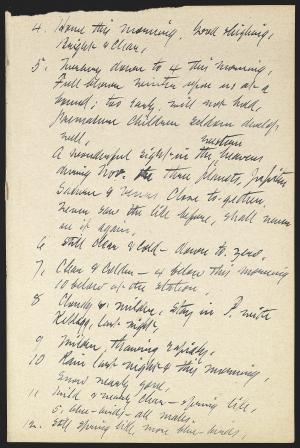 4. Home this morning. Good sleighing.
Bright & clear.
5. Mercury down to 4 this morning.
Full-blown winter upon us at a
bound; too early, will not hold.
Premature children seldom develop
well.
western
A wonderful sight in the heavens
during Nov. the three planets, Jupiter
Saturn & Venus close together.
Never saw the like before, shall never
see it again.
6 Still clear & cold - down to zero.
7. Clear & colder - 4 below this morning
10 below at the station.
8 Cloudy & milder, stay in P. with
last night.
9 Milder, thawing rapidly.
10 Rain last night & this morning,
snow nearly gone.
11. Mild & nearly clear - spring like,
5 blue-birds - all males.
12. Still spring like, more blue-birds,